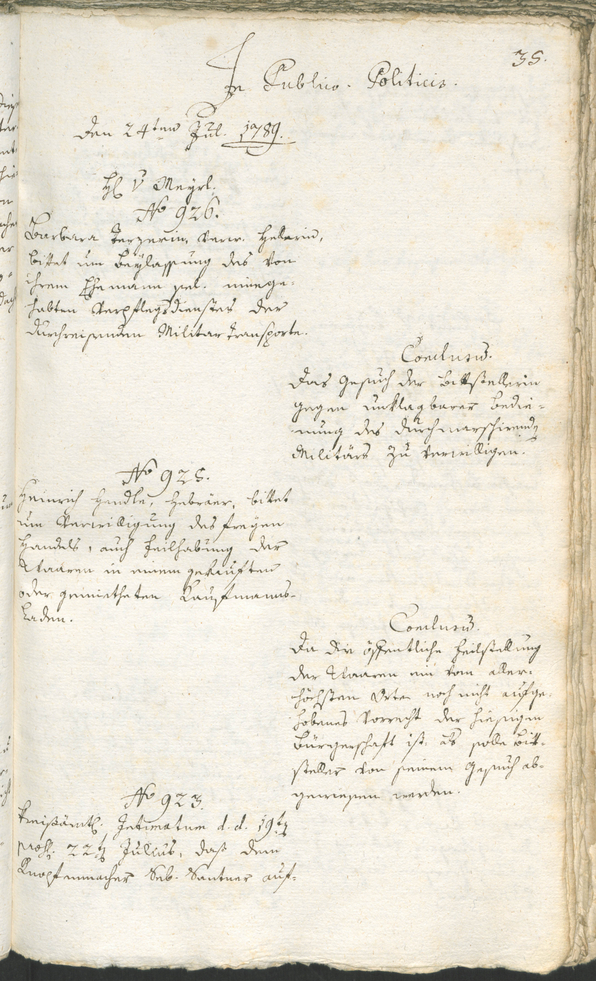 35.
In Publico. Politicis.
Den 24ten Jul. 1789.
H. v Meyrl.
No 926.
Barbara Terzerin, verw. Helerin,
bittet um Beylassung des von
ihrem Ehemann sel. innge-
habten Verpflegsdienstes der
durchreisenden Militar Transporte.
Conclusum.
Das Gesuch der Bittstellerin
gegen unklagbarer Bedie-
nung des durchmarschirend
Militärs zu verwilligen.
No 925.
Heinrich Hendle, Hebräer, bittet
um Verwilligung des freyen
Handels, auch Feilhabung der
Waaren in einem gekauften
oder gemietheten Kaufmanns-
laden.
Conclusum.
Da die öffentliche Feilstellung
der Waaren ein vom aller-
höchsten Orte noch nicht aufge-
hobenes Vorrecht der hiesigen
Bürgerschaft ist, es solle Bitt-
steller von seinem Gesuch ab-
gewiesen werden.
No 923.
Kreisämtl. Intimatum d. d. 19t
praes. 22t Julius, daß dem
Knopfenmacher Seb. Santner auf-